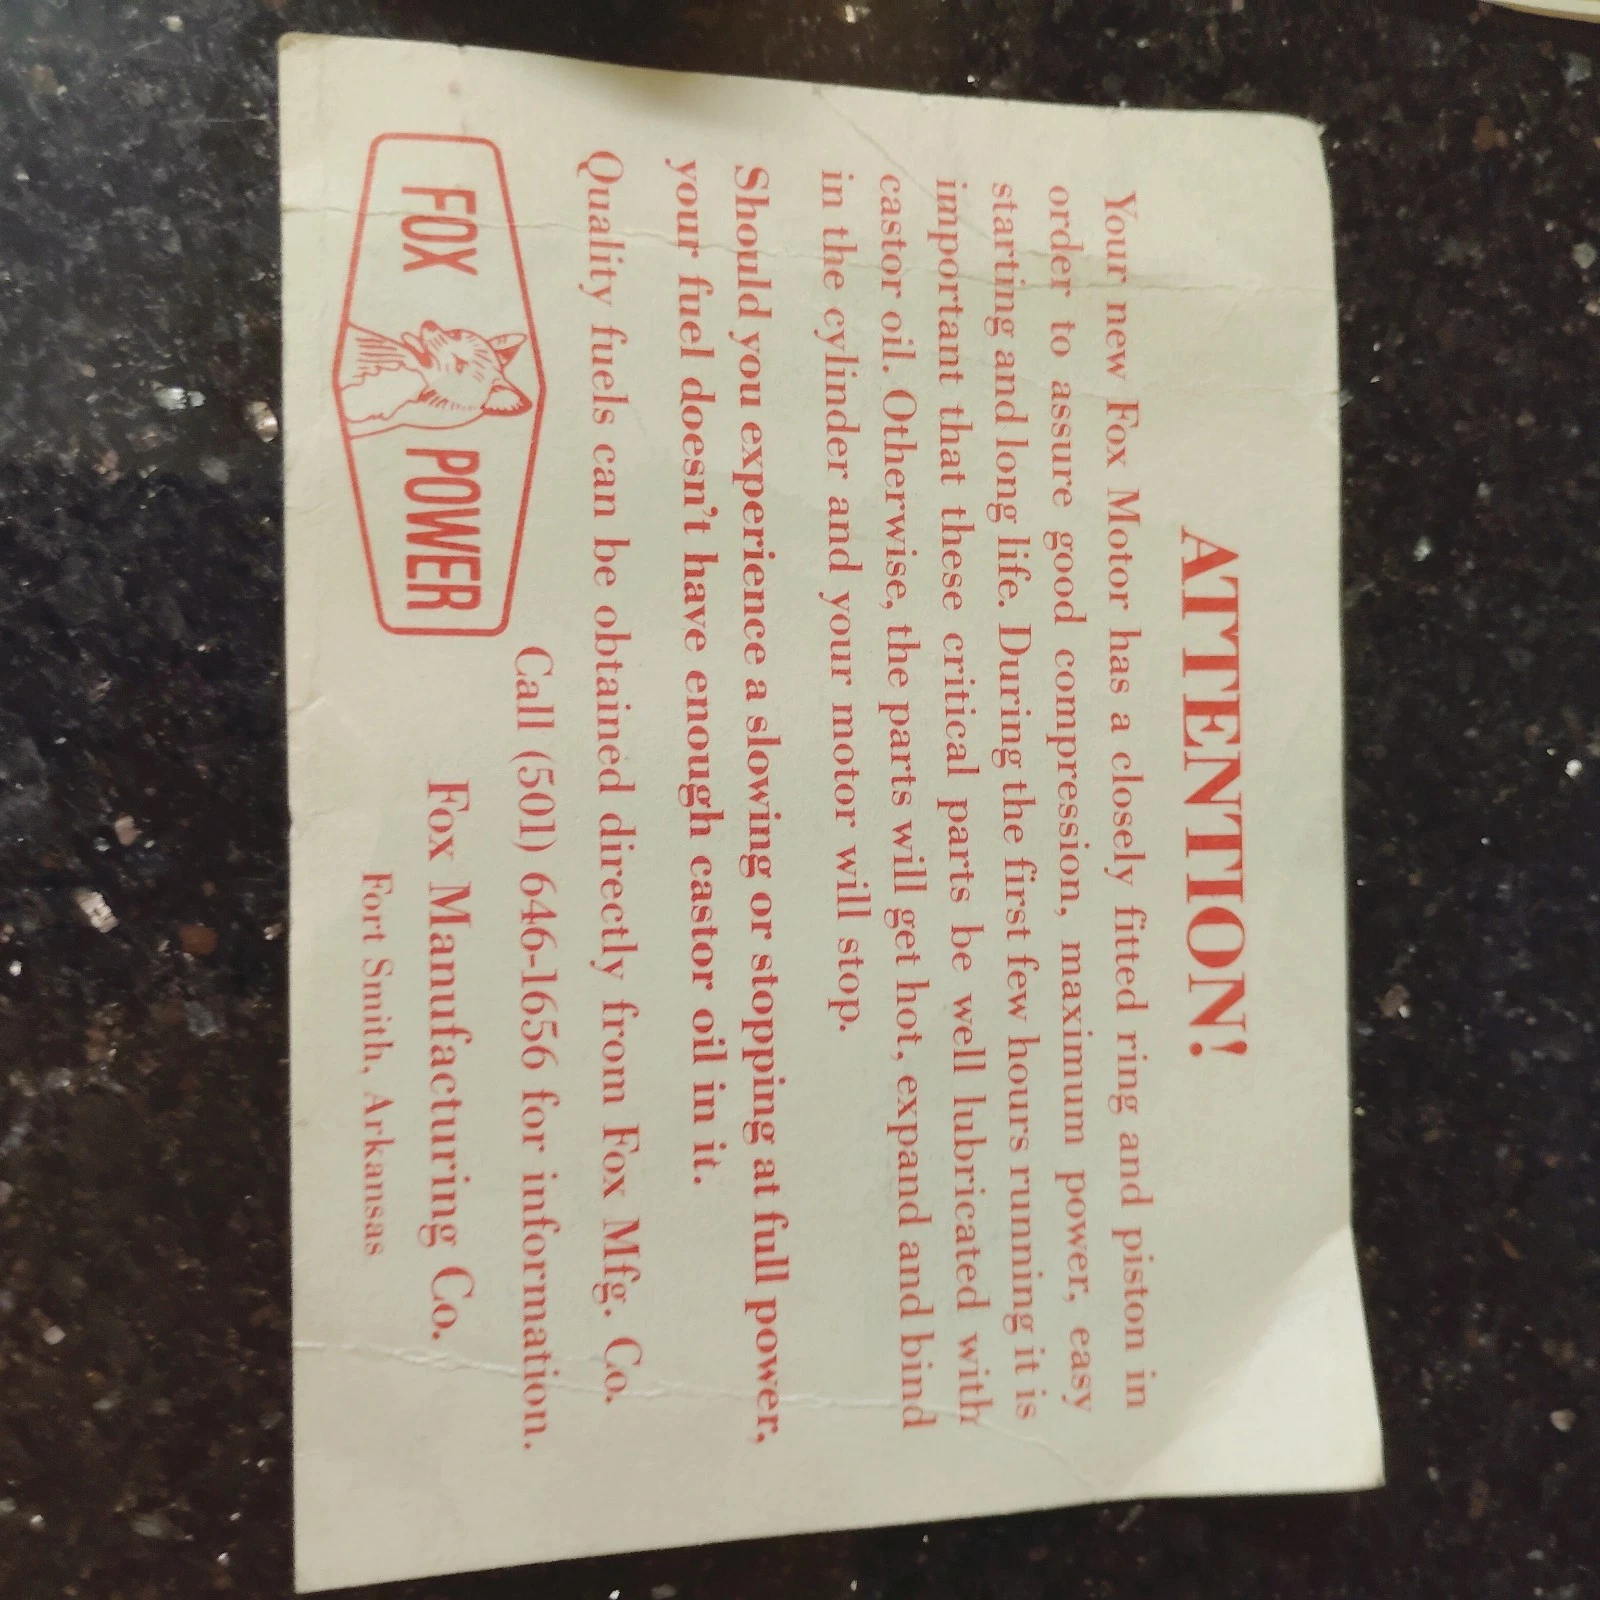 ATTENTION!
Your new Fox Motor has a closely fitted ring and piston in
order to assure good compression, maximum power, easy
starting and long life. During the first few hours running it is
important that these critical parts be well lubricated with
castor oil. Otherwise, the parts will get hot, expand and bind
in the cylinder and your motor will stop.
Should you experience a slowing or stopping at full power,
your fuel doesn't have enough castor oil in it.
Quality fuels can be obtained directly from Fox Mfg. Co.
Call (501) 646-1656 for information.
FOX POWER
Fox Manufacturing Co.
Fort Smith, Arkansas